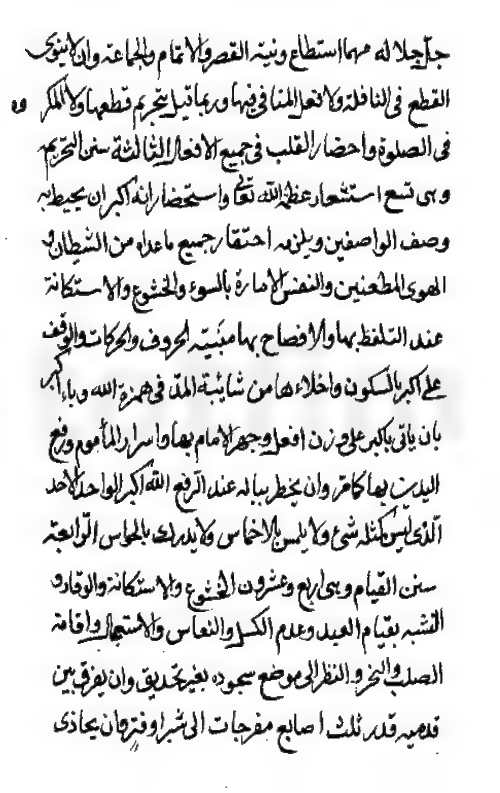 جلّ جلاله مهما استطاع ونية القصر والاتمام والجماعة وان لا ينوى
القطع فى النافلة ولا فعل المنافى فيها وربما قيل بتحريم قطعها ولا المكروه
فى الصلوة واحضار القلب فى جميع الافعال الثالثة سنن التحريم
وهى تسع استشعار عظمة الله تعالى واستحضار انه اكبر ان يحيط به
وصف الواصفين ويلزمه احتقار جميع ماعداه من الشيطان و
الهوى المطغيين والنفس الامارة بالسوء والخشوع والاستكانة
عند التلفظ بها والافصاح بها مبيّنة الحروف والحركات والوقف
على اكبر بالسكون واخلاءها من شائبة المدّ فى همزة الله وباء اكبر
بان ياتى باكبر على وزن افعل وجهر الامام بها واسرار المأموم ورفع
اليدين بها كما مرّ وان يخطر بباله عند الرّفع الله اكبر الواحد الاحد
الّذى ليس كمثله شئ ولا يلمس بالاخماس ولا يدرك بالحواس الرّابعة
سنن القيام وهى اربع وعشرون الخشوع والاستكانة والوقار و
التشبه بقيام العبد وعدم الكسل والنعاس والاستعجال واقامة
الصلب والنحر والنظر الى موضع سجوده بغير تحديق وان يفرق بين
قدميه قدر ثلث اصابع مفرجات الى شبر او فتر وان يحاذى